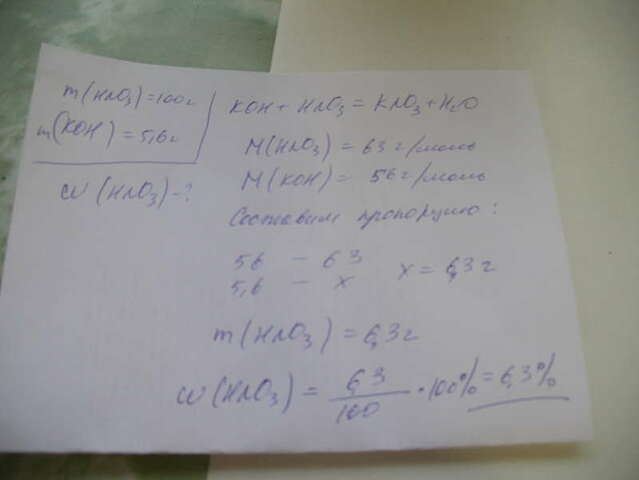 m(HNO3)=100г
m(KOH)=5,6г
w(HNO3)-?
KOH+HNO3=KNO3+H2O
M(HNO3)=63г/моль
M(KOH)=56г/моль
Составим пропорцию:
56 - 63
5,6 - x x=6,3г
m(HNO3)=6,3г
w(HNO3)=6,3/100·100%=6,3%